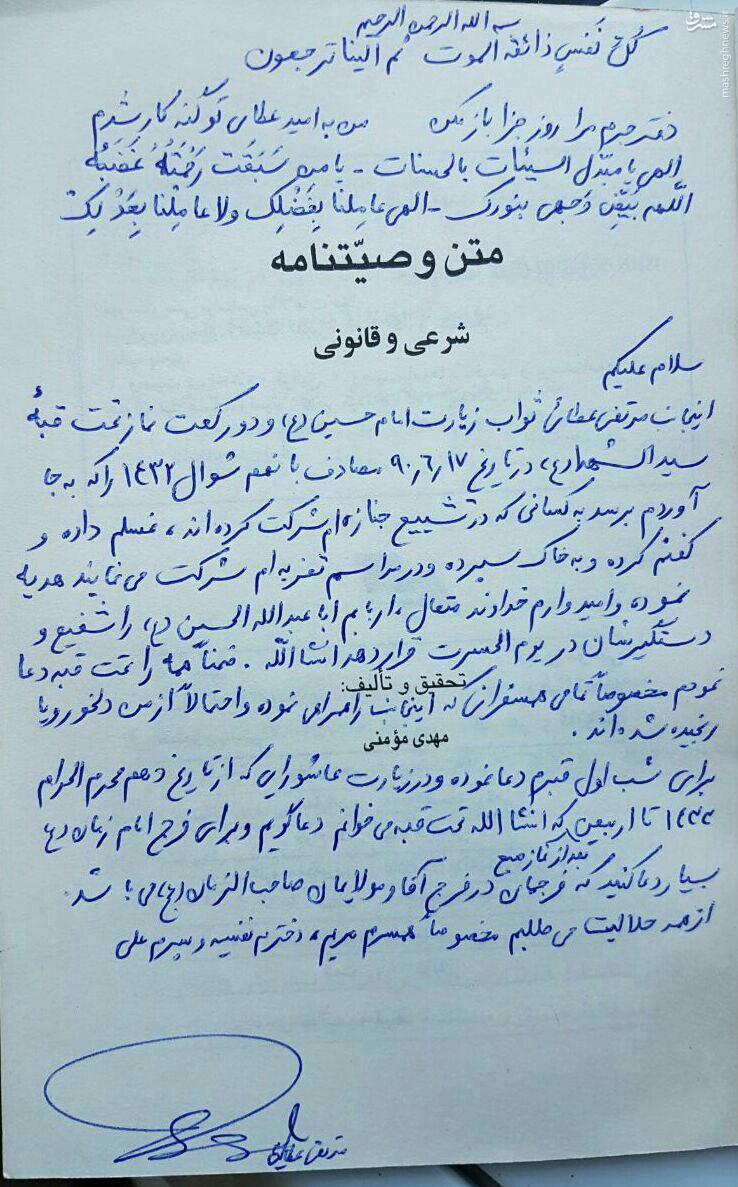 بسم الله الرحمن الرحیم
کُلُّ نَفسٍ ذائقة الموت ثم الینا ترجعون
دفتر جرم مرا روز جزا باز مکن من به امید عطای تو گنه کار شدم
الهی یا مبدّل السیئات بالحسنات - یا من سَبَقَت رَحمَتُهُ غَضَبَهُ
اللّهم بَیِّض وَجهی بنورک - الهی عامِلنا بِفَضلِک ولا عامِلنا بِعَدلِکَ
متن وصیّتنامه
شرعی و قانونی
سلام علیکم
اینجانب مرتضی عطائی ثواب زیارت امام حسین (ع) و دو رکعت نماز تحت قبهٔ
سید الشهدا (ع) در تاریخ ۹۰٫۶٫۱۷ مصادف با نهم شوال ۱۴۳۲ را که به جا
آوردم برسد به کسانی که در تشییع جنازه ام شرکت کرده اند، غسلم داده و
کفنم کرده و به خاک سپرده و در مراسم تعزیه ام شرکت می نمایند هدیه
نموده و امیدوارم خداوند متعال، اربابم أبا عبدالله الحسین (ع) را شفیع و
دستگیرشان در یوم الحسرت قرار دهد انشاالله. ضمناً همه را تحت قبه دعا
تحقیق و تألیف:
نمودم مخصوصاً تمامی همسفرانی که اینجانب را همراهی نموده و احتمالاً از من دلخور و یا
رنجیده شده اند.
مهدی مؤمنی
برای شب اول قبرم دعا نموده و در زیارت عاشورایی که از تاریخ دهم محرم الحرام
۱۴۳۳ تا اربعین که انشاالله تحت قبه می خوانم دعاگویم و برای فرج امام زمان (ع)
بعد از نماز صبح
بسیار دعا کنید که فرجمان در فرج آقا و مولایمان صاحب الزمان (عج) می باشد.
از همه حلالیت می طلبم مخصوصاً همسرم مریم، دخترم نفیسه و پسرم علی
مرتضی عطائی
مشرق
mashreghnews.ir